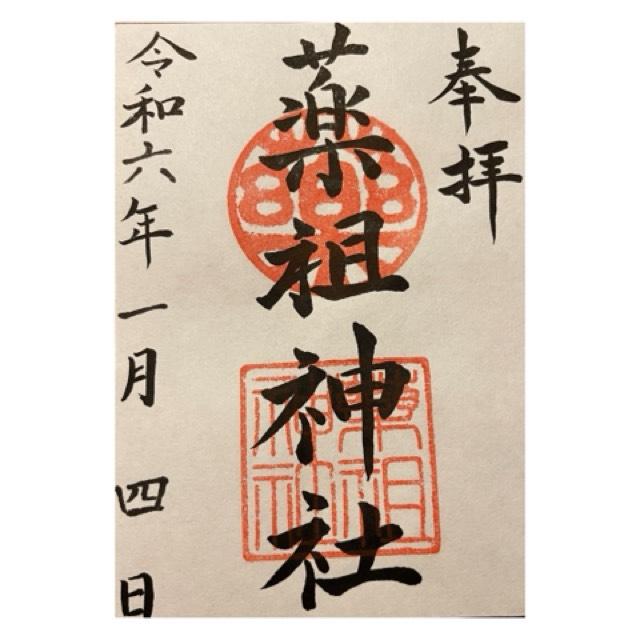 奉拝
薬祖神社
薬祖
神社
令和六年一月四日